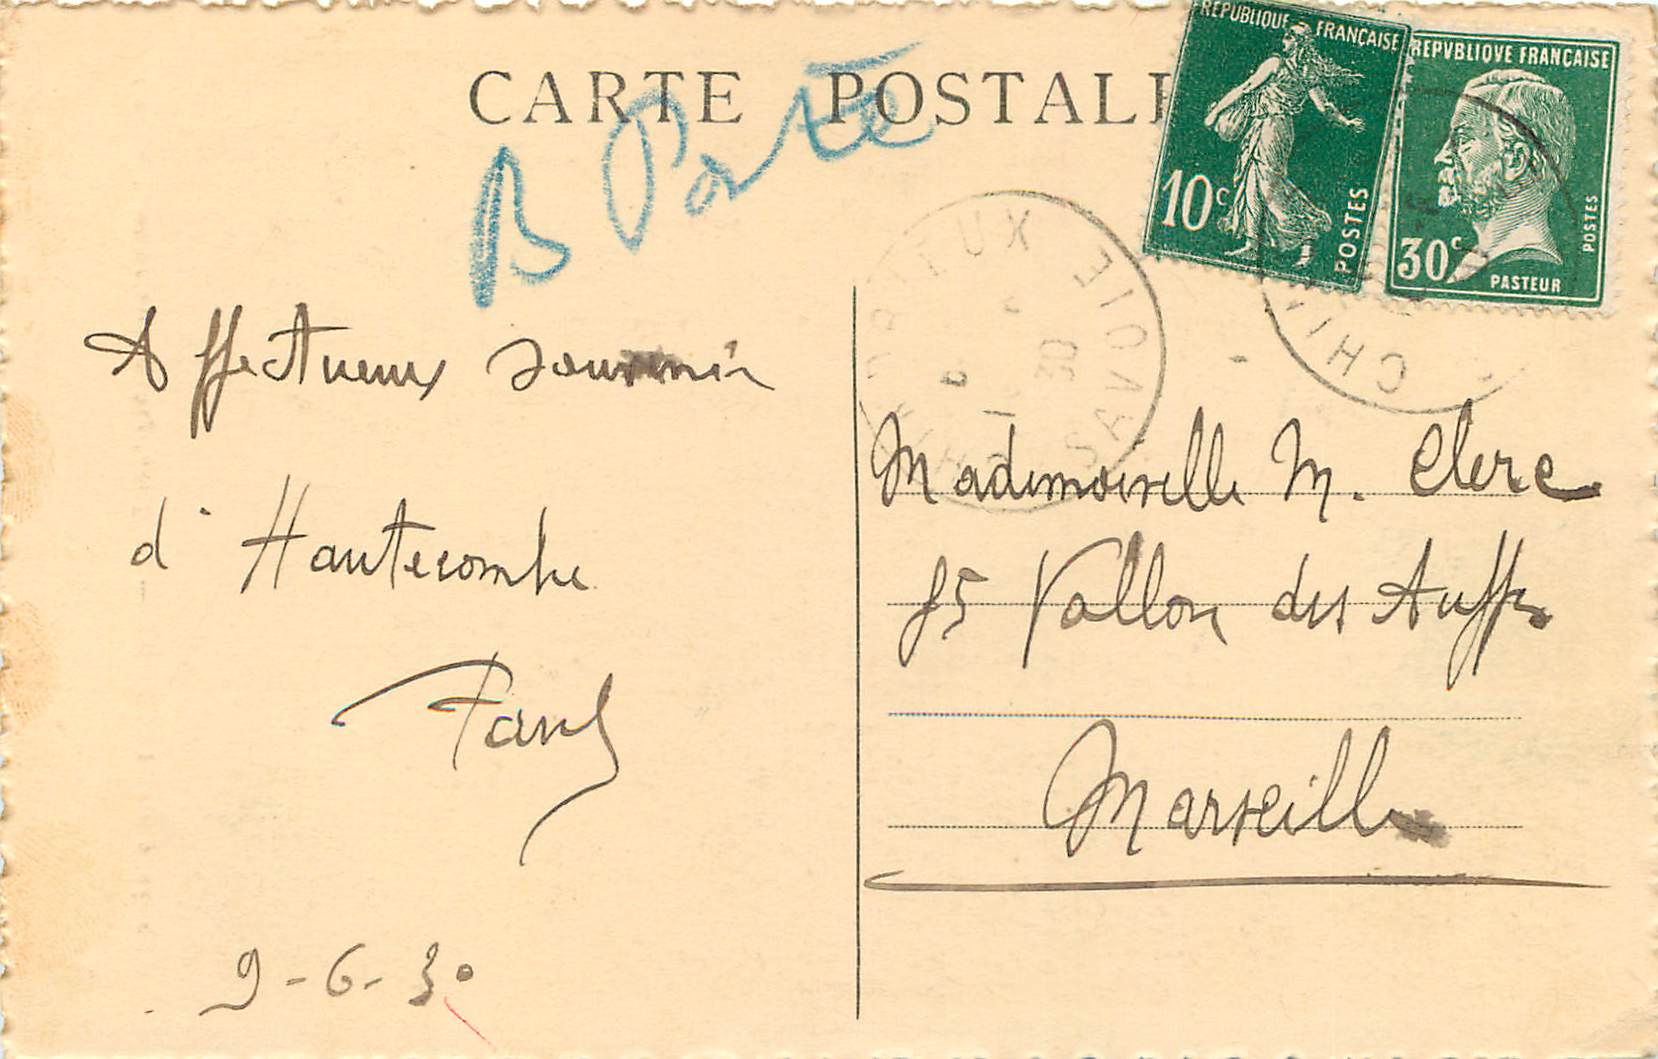 CARTE POSTAL
RÉPUBLIQUE FRANÇAISE
10c
POSTES
REPVBLIQVE FRANÇAISE
30c
POSTES
PASTEUR
B Porte
SAVOIE
30
CHIN
Affectueux souvenir
d'Hautecombe
Paul
9-6-30
Mademoiselle M. Clerc
85 Vallon des Auffes
Marseille